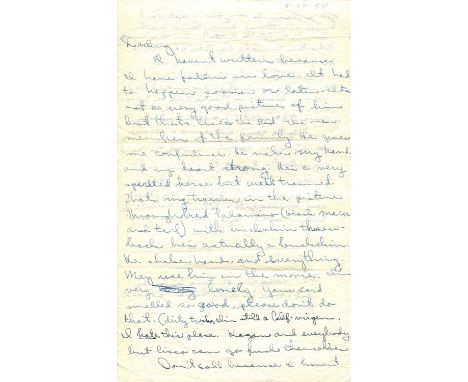 Darling,
I havent written because
I have fallen in love. It had
to happen sooner or later. Its
not a very good picture of him
but thats "Cisco the Kid" the new
member of the family. He gives
me confidence to make my hand
and my heart strong. He's a very
spirited horse but well trained.
Thats my trainer in the picture
Throughbred Palamino (black main
and tail) with
back he's actually a buckskin
He shakes hands and everything.
May use him in the movie. I'm
very lonely. Your card
smelled so good, please don't do
that. (dirty trick, I'm still a Calif-virgin.
I hate this place. Hagen and everybody
but Cisco can go fuck themselves
Don't call because I havent